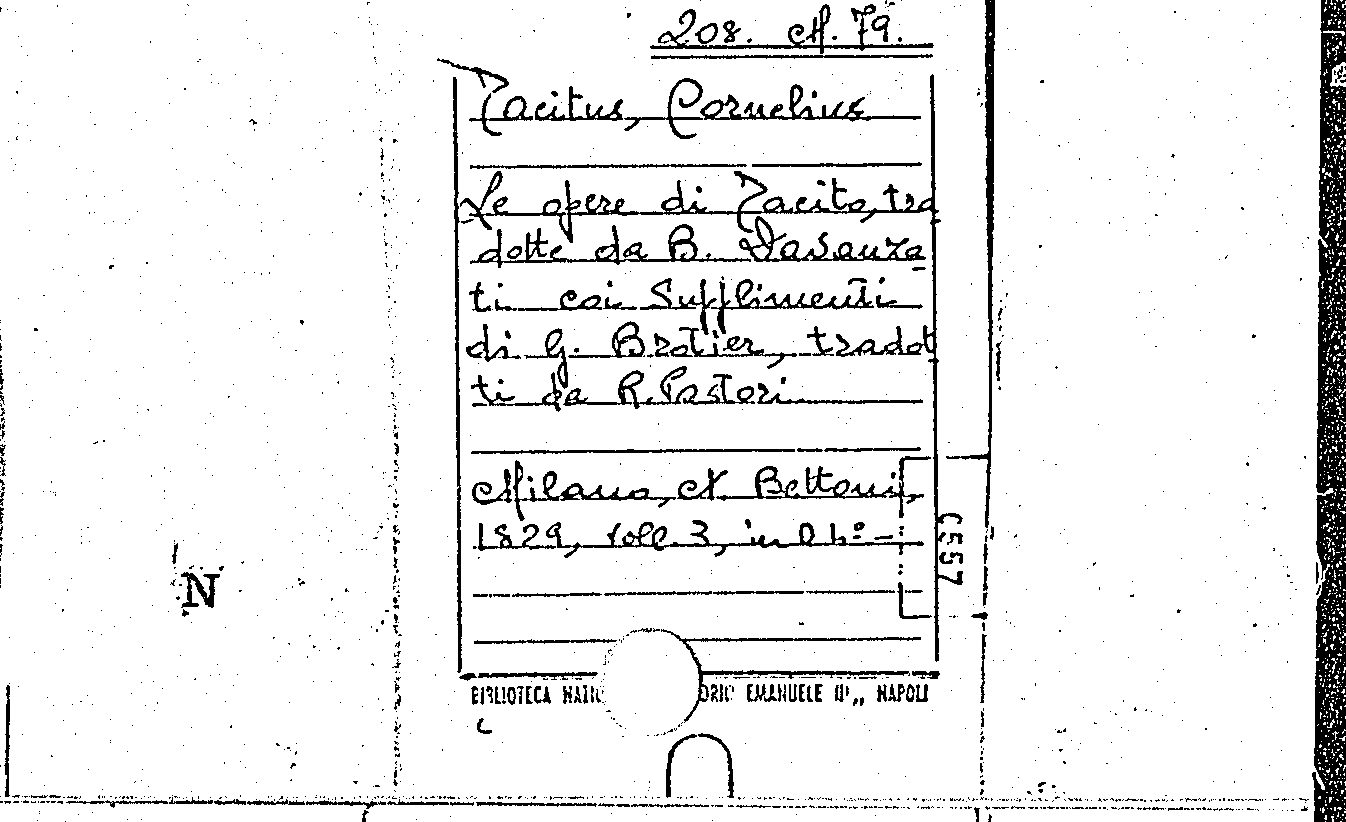 208. M. 79.
Tacitus, Cornelius
Le opere di Tacito, tra
dotte da B. Davanza
ti coi Supplimenti
di G. Brotier, tradot
ti da R. Pastori
Milano, N. Bettoni,
1829, voll. 3, in
C557
N
BIBLIOTECA EMANUELE III", NAPOLI